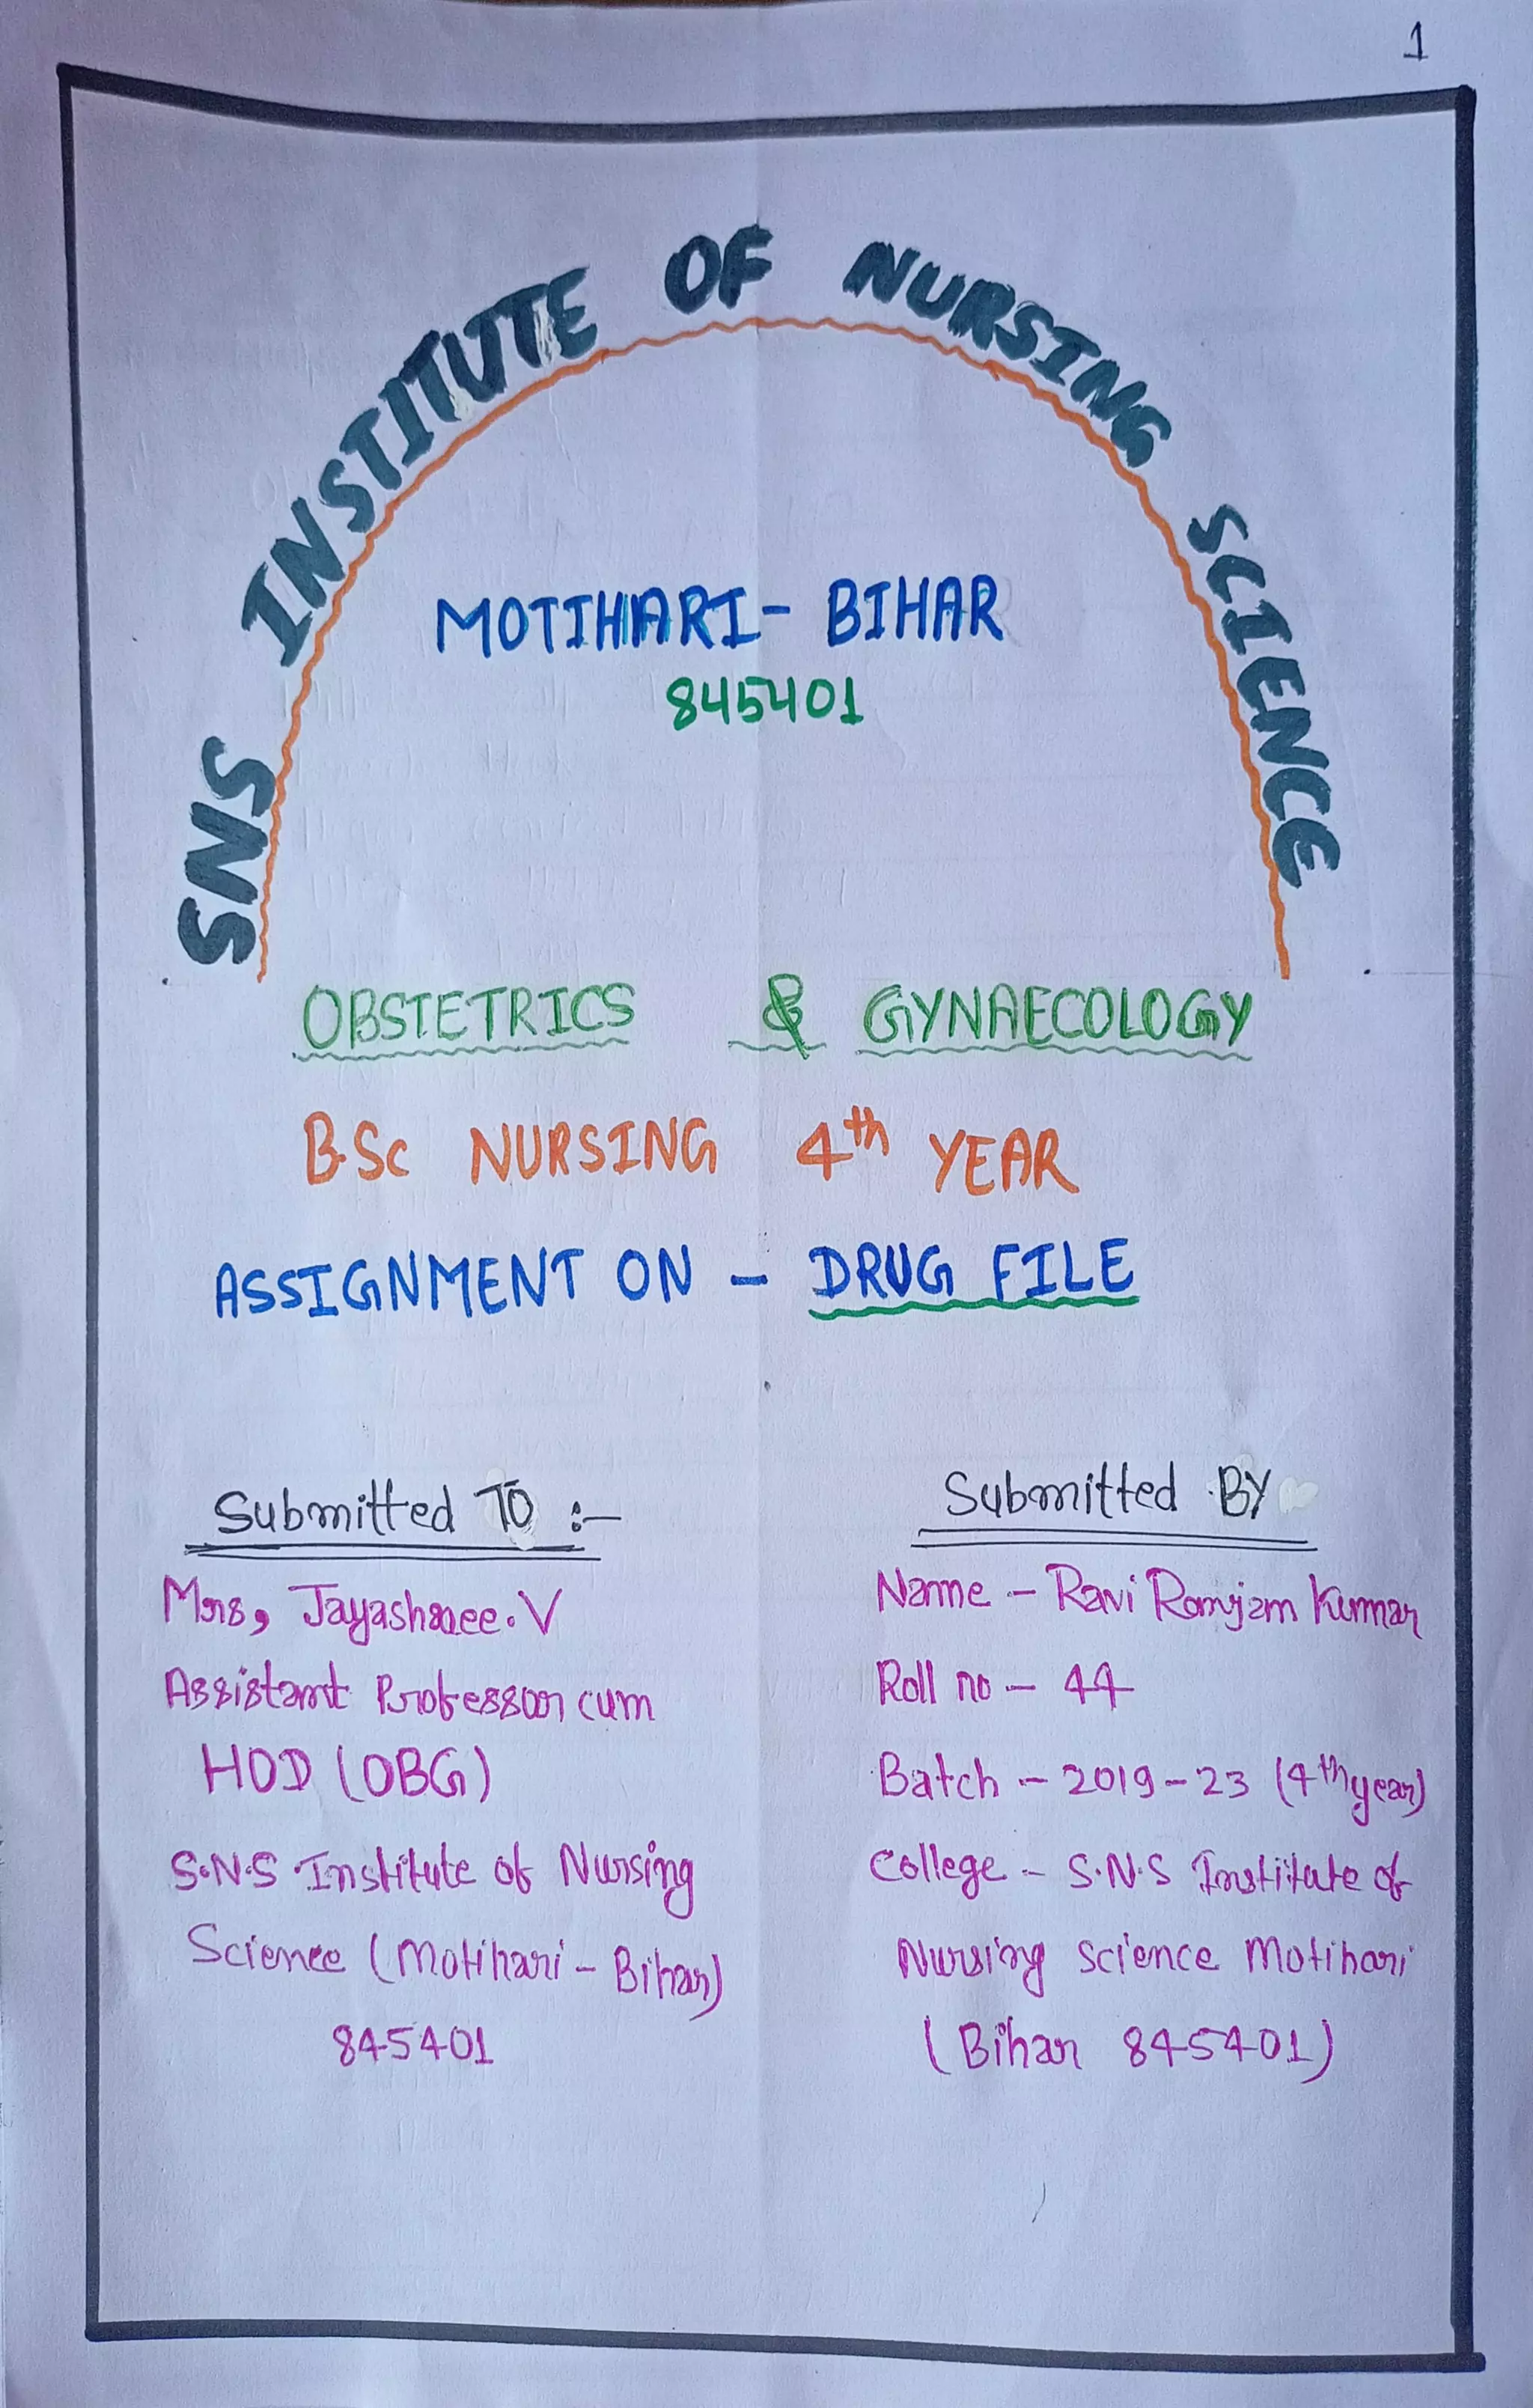 1
SNS INSTITUTE OF NURSING SCIENCE
MOTIHARI - BIHAR
845401
OBSTETRICS & GYNAECOLOGY
B.Sc NURSING 4th YEAR
ASSIGNMENT ON - DRUG FILE
Submitted TO :-
Mrs, Jayashree. V
Assistant Professor cum
HOD (OBG)
S.N.S Institute of Nursing
Science (Motihari - Bihar)
845401
Submitted BY
Name - Ravi Ranjan Kumar
Roll no - 44
Batch - 2019-23 (4th year)
College - S.N.S Institute of
Nursing Science Motihari
(Bihar 845401)